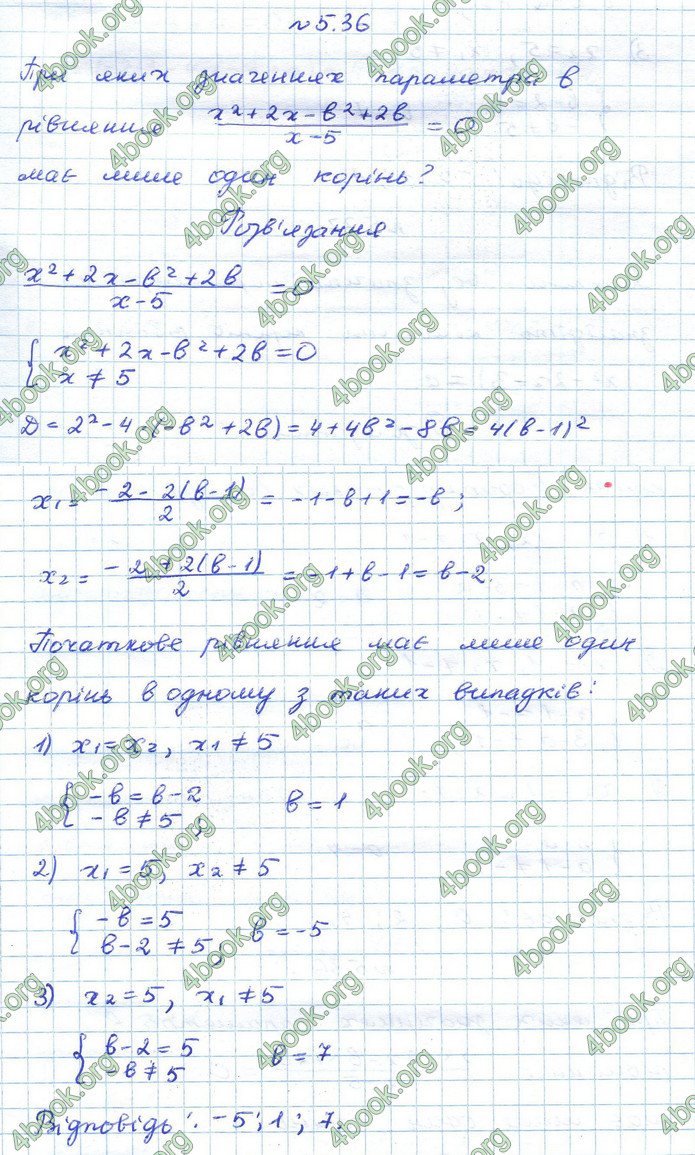 №5.36
При яких значеннях параметра в
рівняння (x²+2x-в²+2в)/(x-5) = 0
має лише один корінь?
Розв'язання
(x²+2x-в²+2в)/(x-5) = 0
{ x²+2x-в²+2в=0
x≠5
Д = 2²-4·(-в²+2в) = 4+4в²-8в = 4(в-1)²
x₁ = (-2-2(в-1))/2 = -1-в+1 = -в;
x₂ = (-2+2(в-1))/2 = -1+в-1 = в-2.
Початкове рівняння має лише один
корінь в одному з таких випадків:
1) x₁=x₂, x₁≠5
{ -в=в-2
-в≠5, в=1
2) x₁=5, x₂≠5
{ -в=5
в-2≠5, в=-5
3) x₂=5, x₁≠5
{ в-2=5
-в≠5 в=7
Відповідь: -5; 1; 7.
4book.org